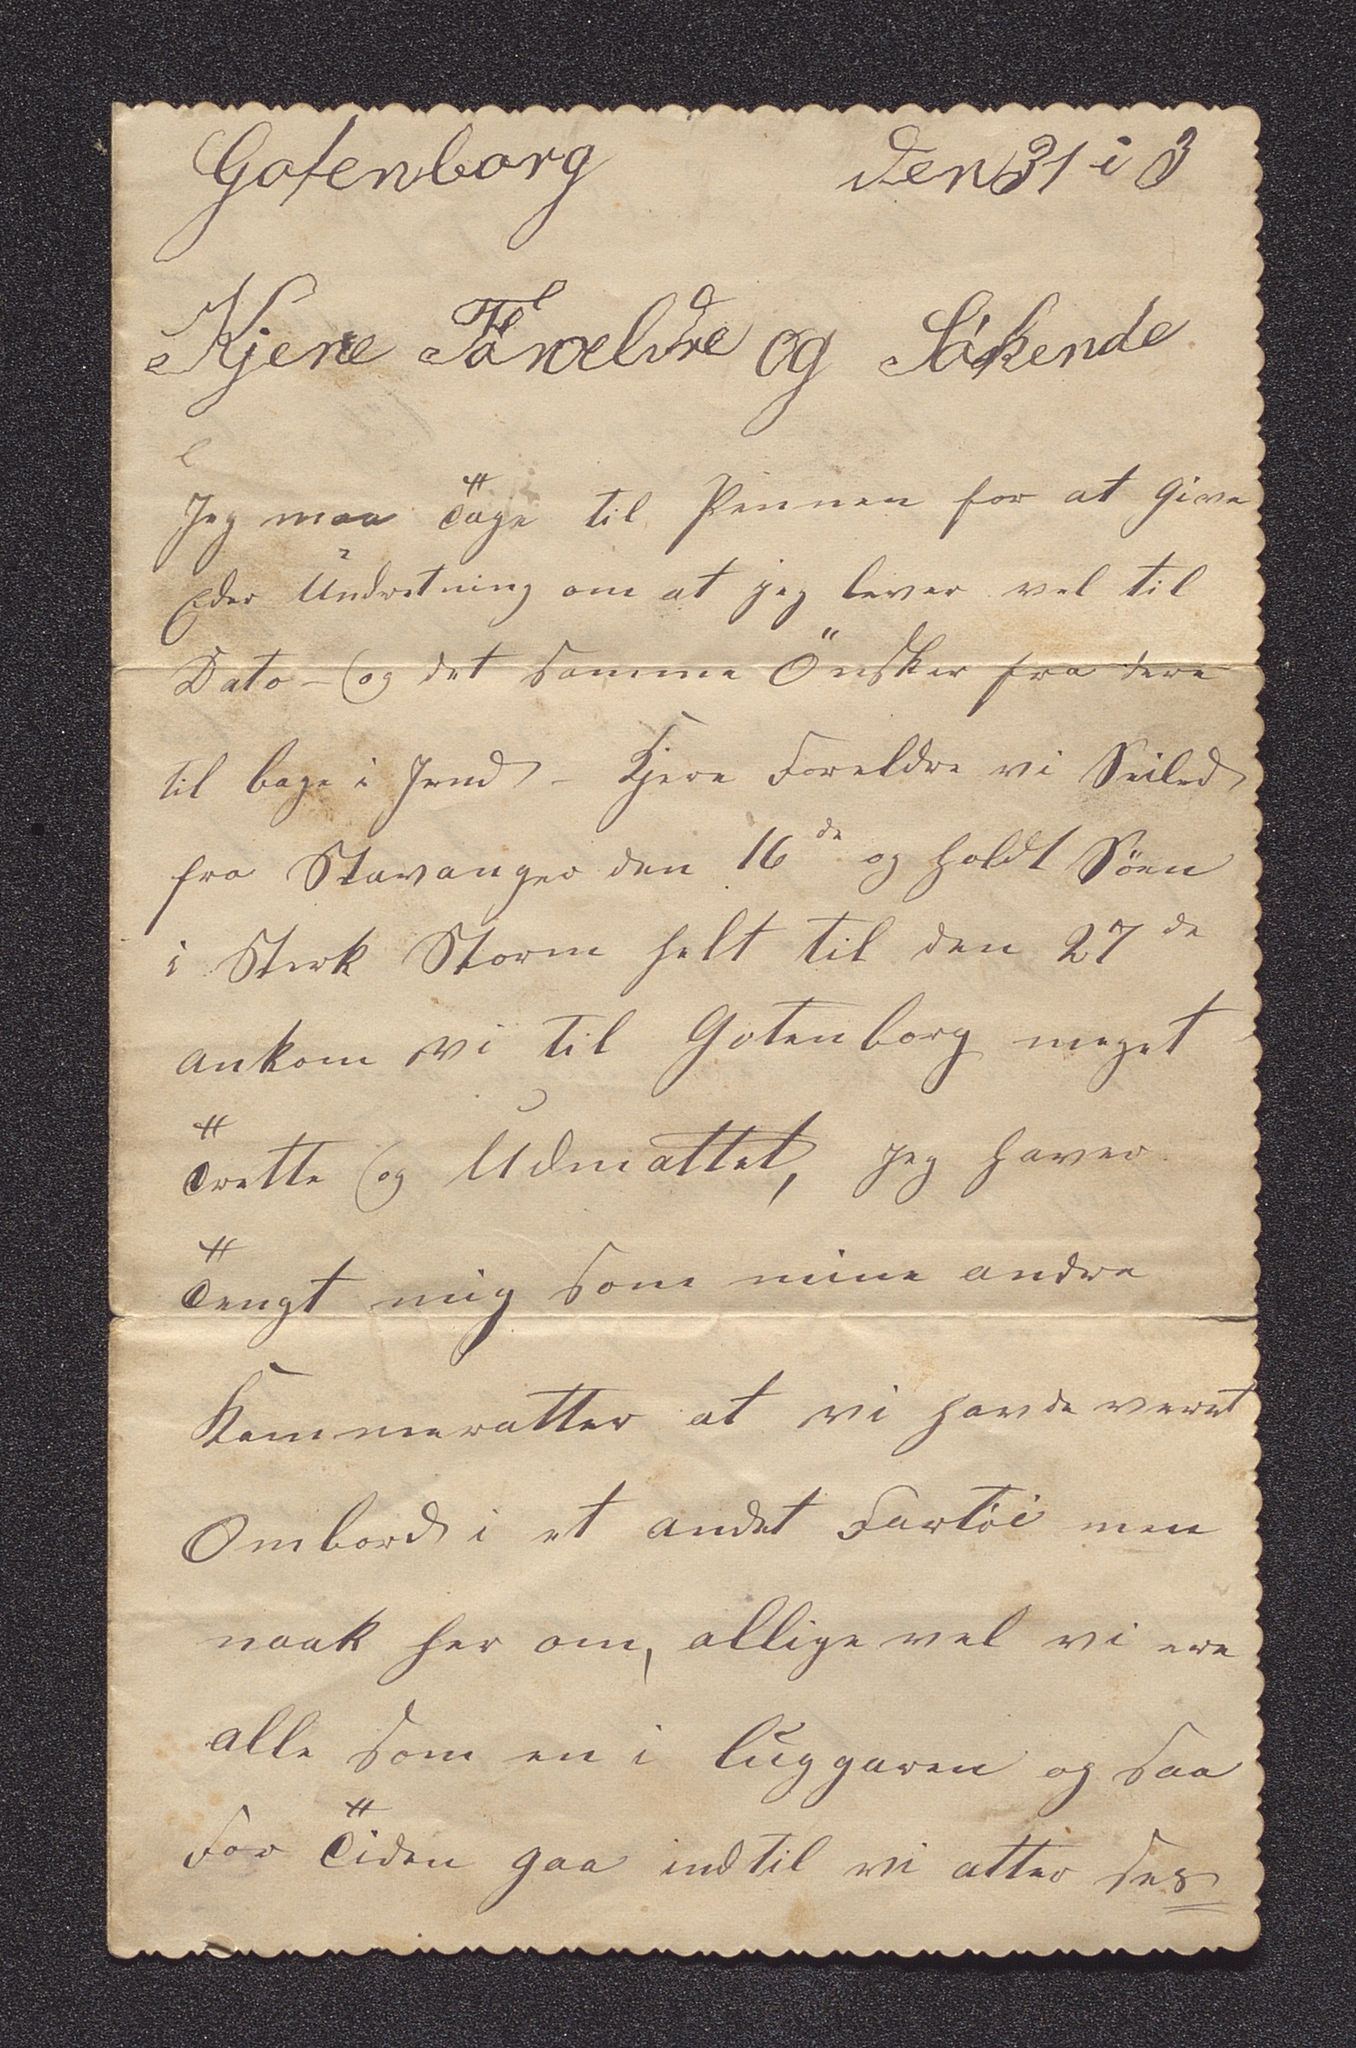 Gotenborg den 31 i 3
Kjere Foreldre og Söskende
Jeg maa Tage til Pennen for at give
Eder Undretning om at jeg lever vel til
Dato – og det samme Önsker fra dere
til bage i Jend – Kjere Foreldre vi Seiled
fra Stavanger den 16de og holdt Söen
i Sterk Storm helt til den 27de
ankom vi til Gotenborg meget
Trette og Udmattet, jeg haver
Tengt mig som mine andre
Kammeratter at vi havde veret
Ombord i et andet Fartöi men
naak her om, allige vel vi ere
alle som en i luggaren og saa
For Tiden gaa indtil vi atter ses